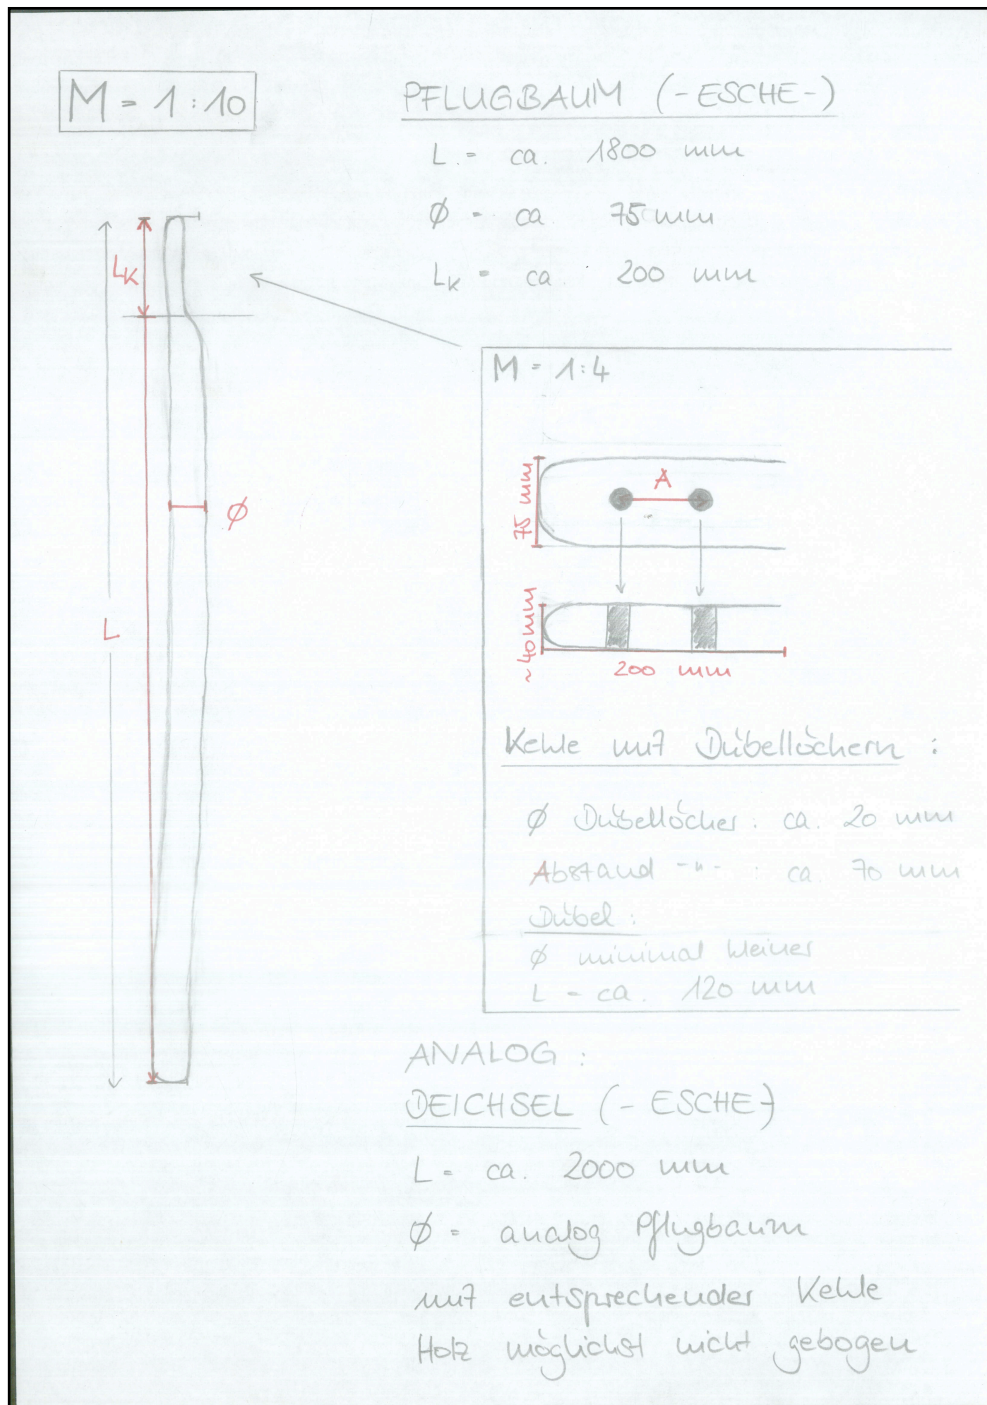 M = 1 : 10
PFLUGBAUM (-ESCHE-)
L = ca. 1800 mm
Ø = ca 75 mm
LK = ca. 200 mm
LK
Ø
L
M = 1:4
75 mm
A
~40 mm
200 mm
Kehle mit Dübellöchern :
Ø Dübellöcher : ca. 20 mm
Abstand -"- : ca. 70 mm
Dübel :
Ø minimal kleiner
L = ca. 120 mm
ANALOG :
DEICHSEL (- ESCHE-)
L = ca. 2000 mm
Ø = analog Pflugbaum
mit entsprechender Kehle
Holz möglichst nicht gebogen